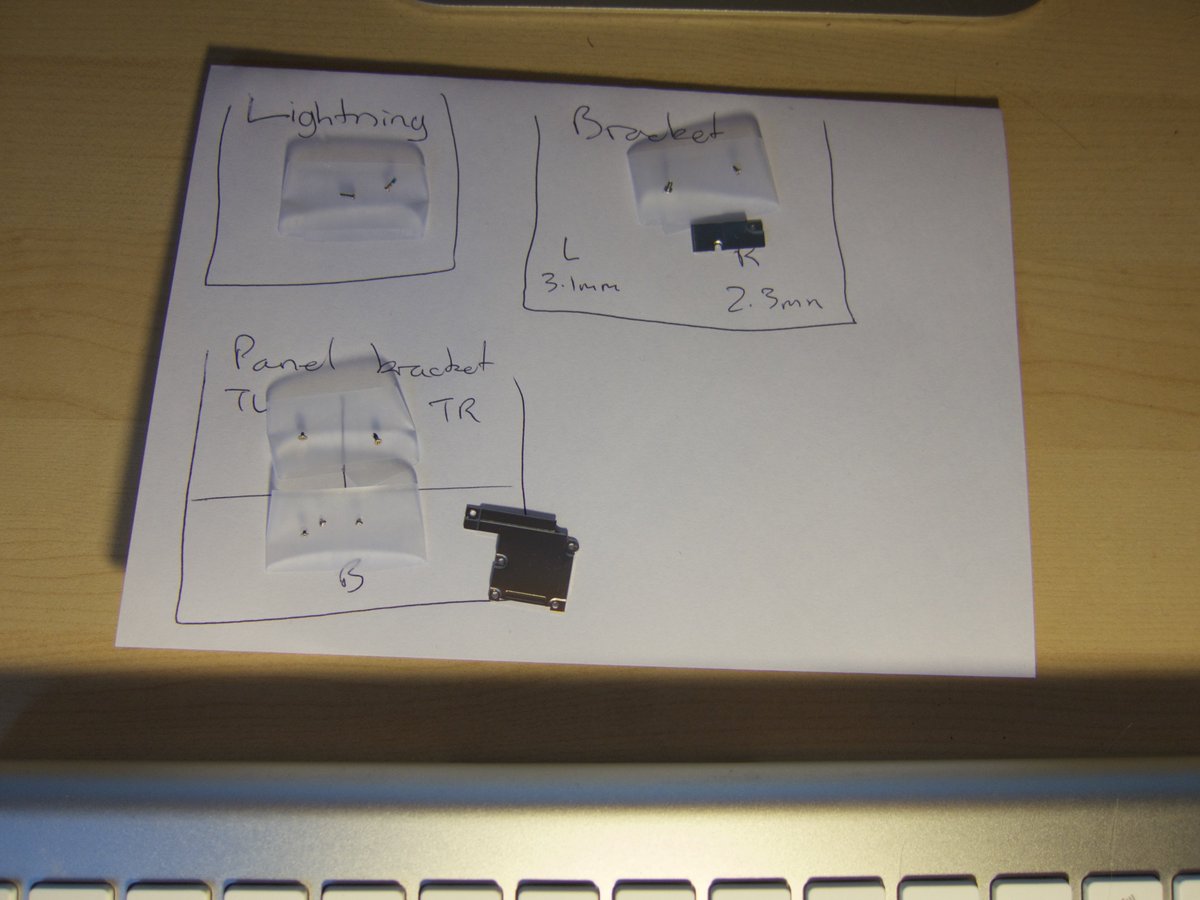 Lightning
Bracket
L
R
3.1mm
2.3mm
Panel bracket
TL
TR
B